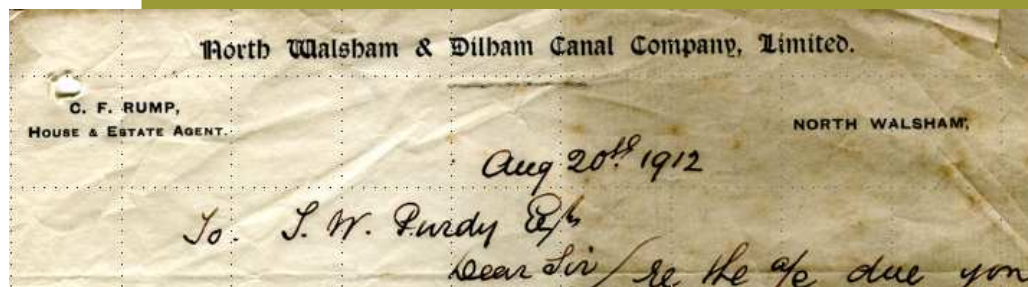 North Walsham & Dilham Canal Company, Limited.
C. F. RUMP,
HOUSE & ESTATE AGENT.
NORTH WALSHAM,
Aug 20th 1912
To. T. W. Purdy Esq
Dear Sir / re the a/c due you